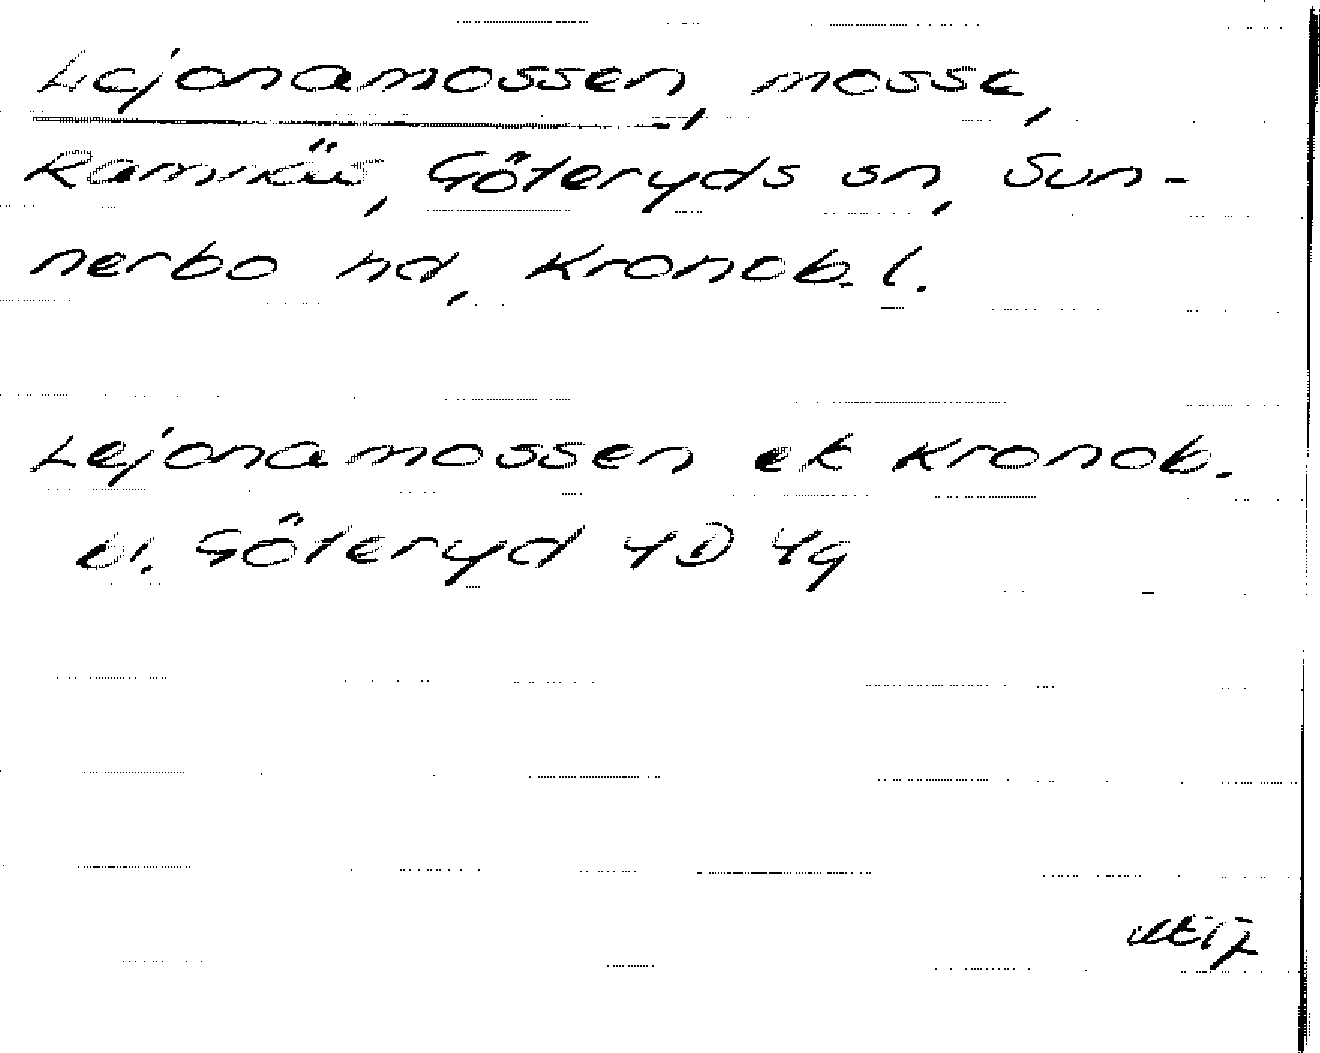 Lejonamossen, mosse,
Göteryds sn, Sun-
nerbo hd, Kronob. l.
Lejonamossen ek Kronob.
Göteryd 4D 4g